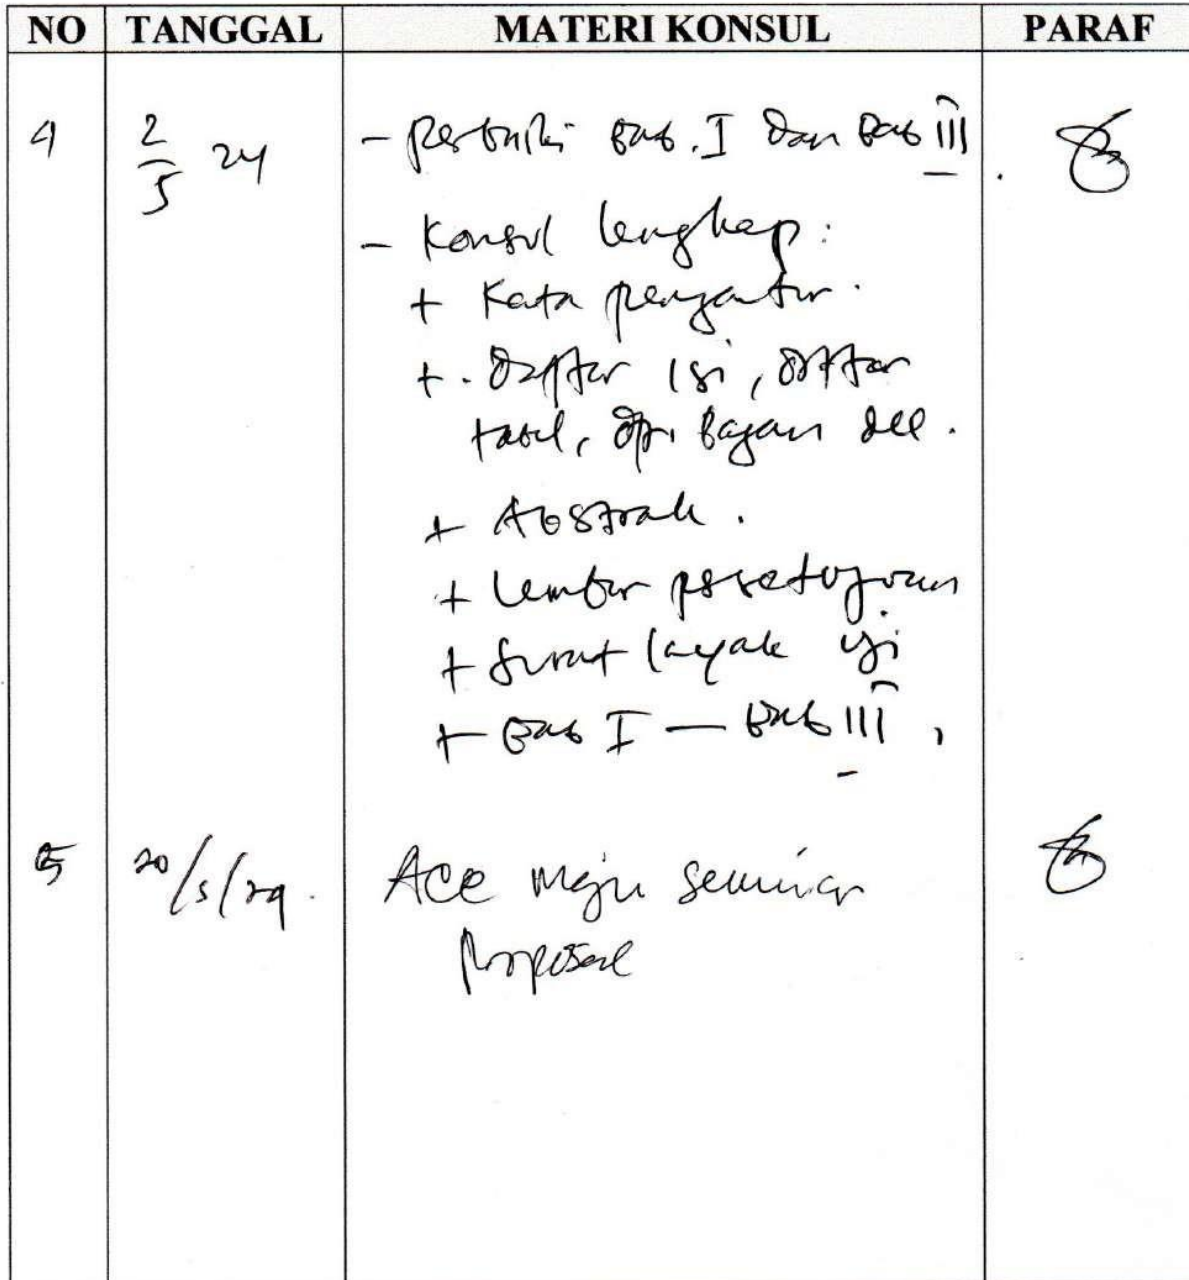 NO TANGGAL MATERI KONSUL PARAF
4 2/5 24 - Perbaiki Bab. I dan Bab III.
- Konsul lengkap:
+ Kata pengantar.
+ . Daftar isi, Daftar
tabel, dftr bagan dll.
+ Abstrak.
+ Lembar persetujuan
+ Surat layak uji
+ Bab I — Bab III,
5 20/5/24. Acc maju seminar
Proposal